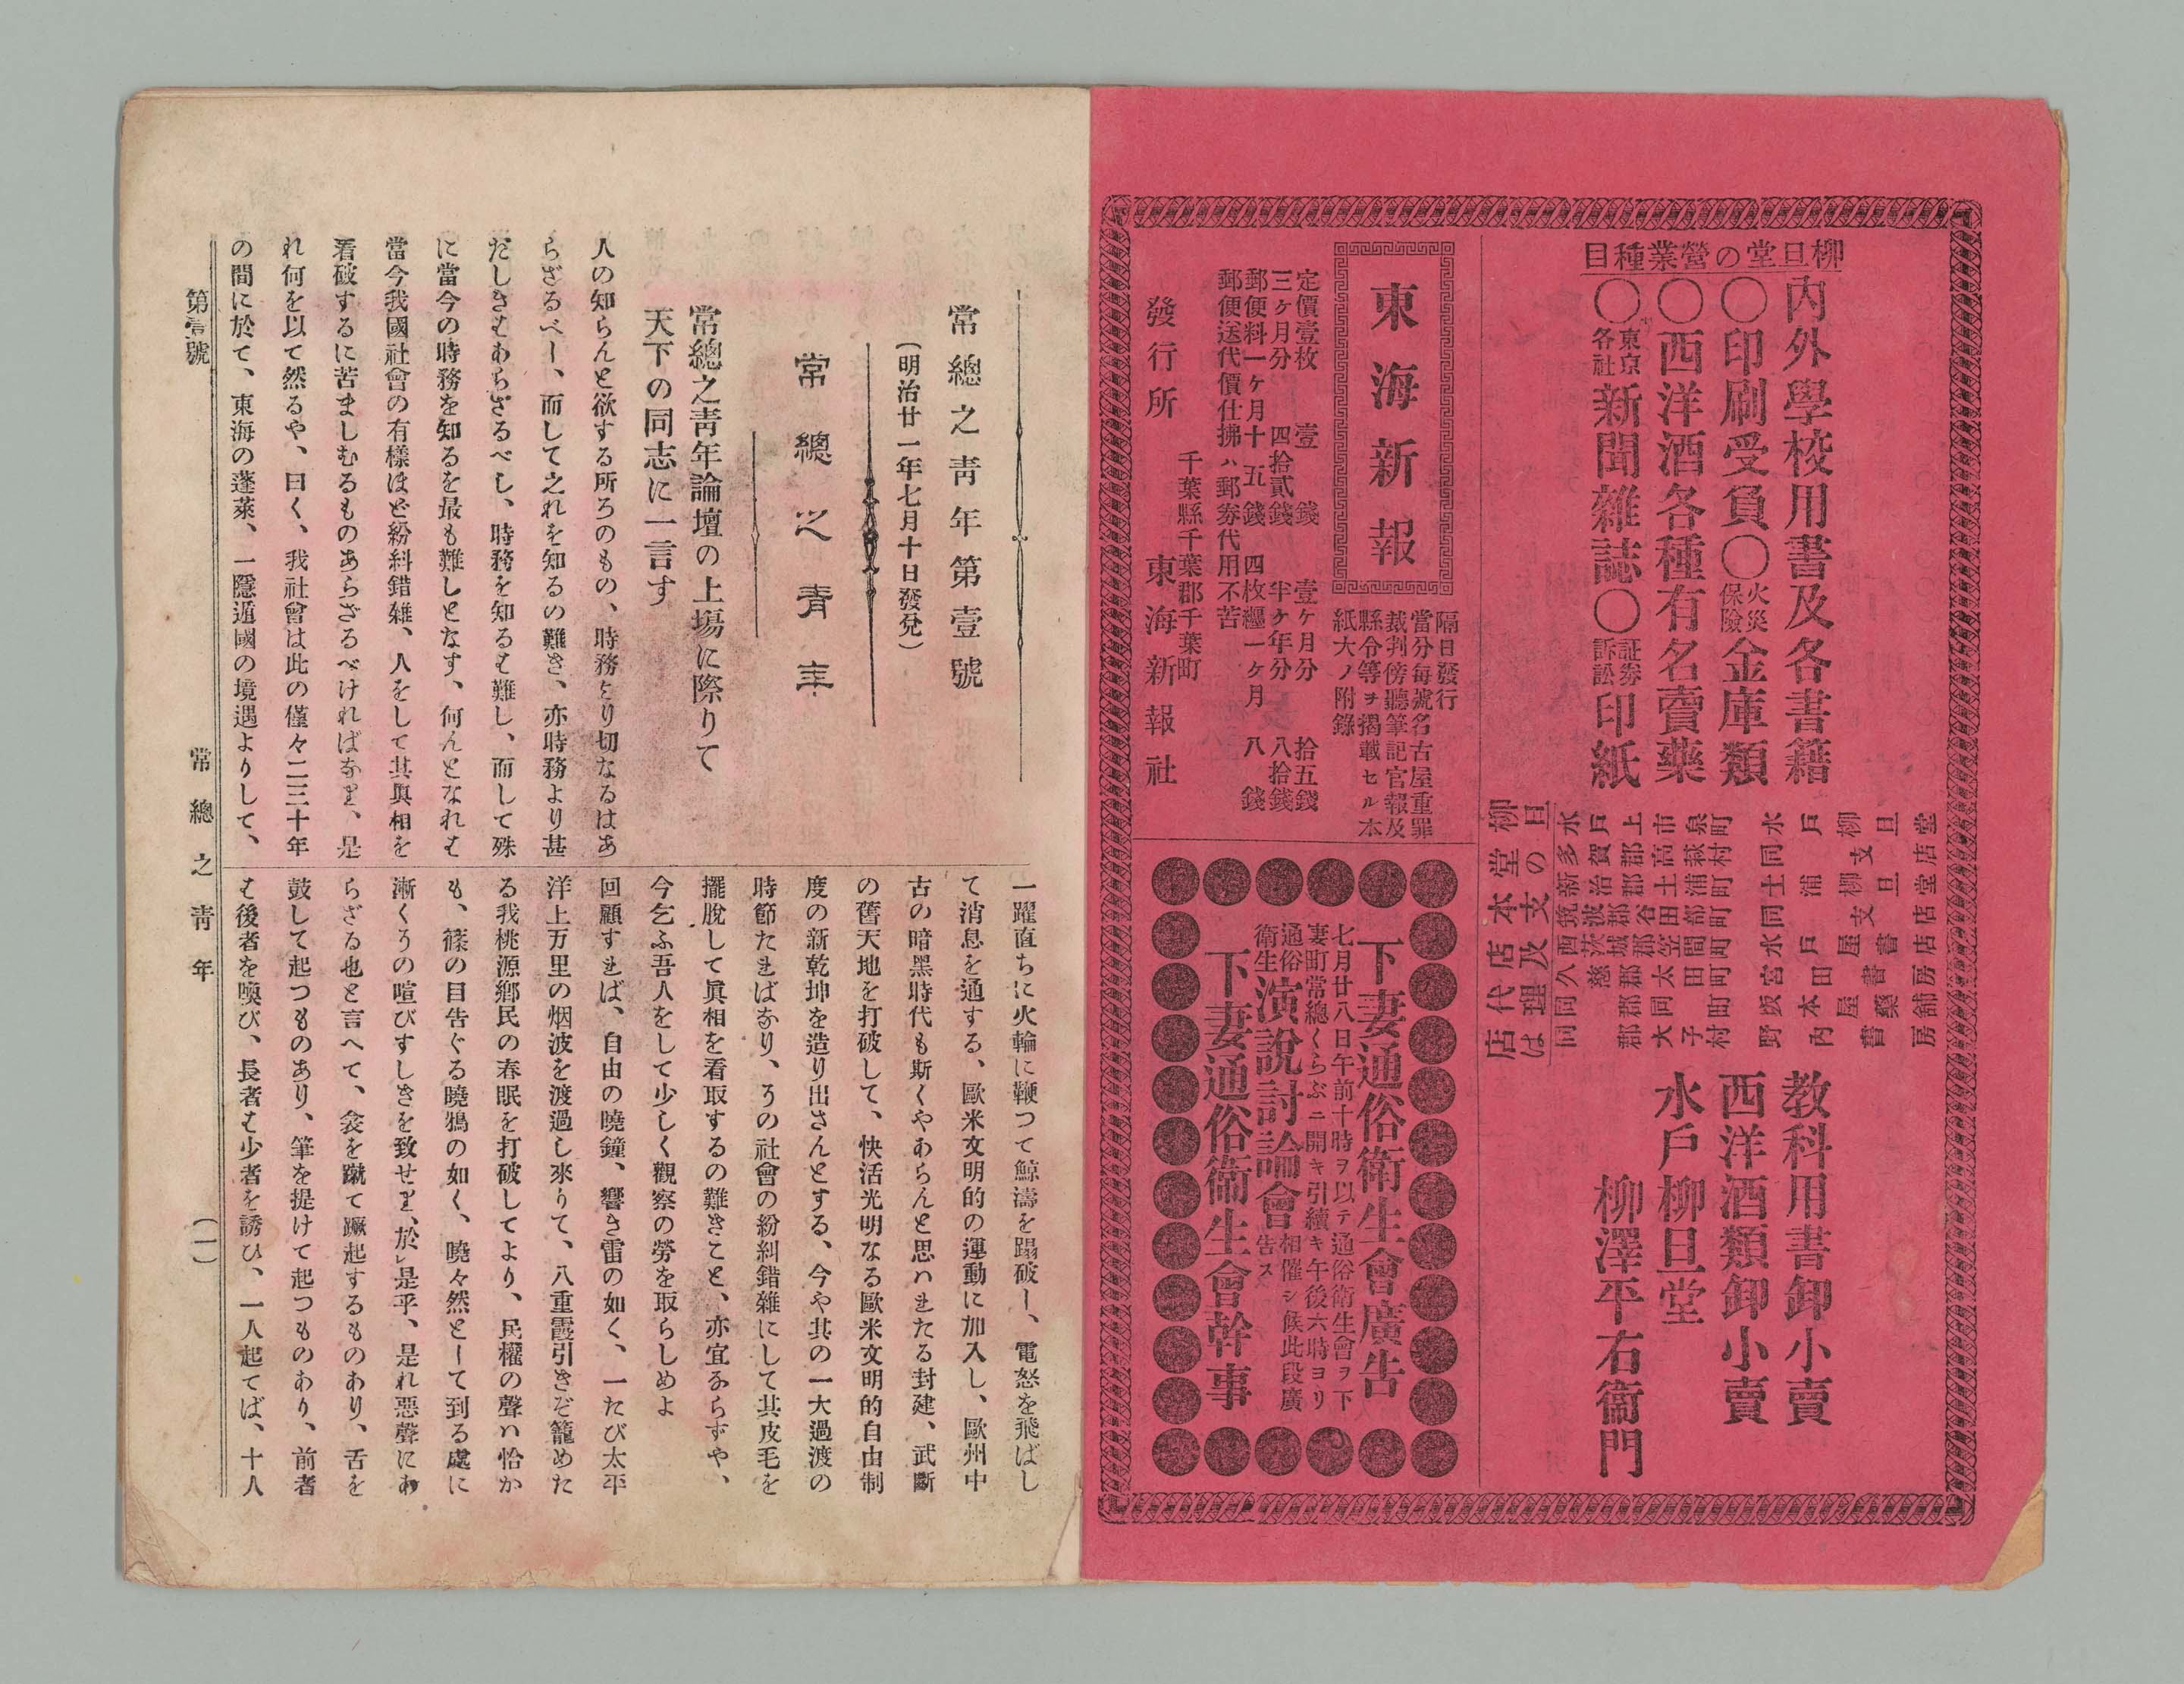 柳旦堂の營業種目
内外學校用書及各書籍
〇印刷受負〇火災保險金庫類
〇西洋酒各種有名賣藥
〇東京各社新聞雜誌〇証券訴訟印紙
柳旦堂本支店及代理店は
教科用書卸小賣
西洋酒類卸小賣
水戸柳旦堂
柳澤平右衞門
東海新報
隔日發行
當分毎號名古屋重罪
裁判傍聽筆記官報及
縣令等ヲ掲載セル本
紙大ノ附錄
定價壹枚 壹錢 壹ヶ月分 拾五錢
三ヶ月分 四拾貳錢 半ケ年分 八拾錢
郵便料一ヶ月十五錢 四枚纒一ヶ月 八錢
郵便送代價仕拂ハ郵券代用不苦
千葉縣千葉郡千葉町
發行所 東海新報社
下妻通俗衞生會廣告
七月廿八日午前十時ヲ以テ通俗衞生會ヲ下
妻町常總くらぶニ開キ引續キ午後六時ヨリ
通俗衞生演說討論會相催シ候此段廣告ス
下妻通俗衞生會幹事
常總之靑年第壹號
(明治廿一年七月十日發兌)
常總之靑年
常總之靑年論壇の上塲に際りて
天下の同志に一言す
人の知らんと欲する所ろのもの、時務とり切なるはあ
らざるべし、而して之れを知るの難き、亦時務より甚
だしきはあらざるべし、時務を知るは難し、而して殊
に當今の時務を知るを最も難しとなす、何んとなれば
當今我國社會の有樣ほど紛糾錯雜、人をして其眞相を
看破するに苦ましむるものあらざるべければなり、是
れ何を以て然るや、曰く、我社會は此の僅々二三十年
の間に於て、東海の蓬萊、一隱遁國の境遇よりして、
一躍直ちに火輪に鞭つて鯨濤を蹋破し、電怒を飛ばし
て消息を通する、歐米文明的の運動に加入し、歐州中
古の暗黑時代も斯くやあらんと思ハれたる封建、武斷
の舊天地を打破して、快活光明なる歐米文明的自由制
度の新乾坤を造り出さんとする、今や其の一大過渡の
時節たればなり、うの社會の紛糾錯雜にして其皮毛を
擺脫して眞相を看取するの難きこと、亦宜ならずや、
今乞ふ吾人をして少しく觀察の勞を取らしめよ
回顧すれば、自由の曉鐘、響き雷の如く、一たび太平
洋上万里の烟波を渡過し來りて、八重霞引きぞ籠めた
る我桃源鄕民の春眠を打破してより、民權の聲ハ恰か
も、篠の目告ぐる曉鴉の如く、曉々然として到る處に
漸くうの喧びすしきを致せり、於レ是乎、是れ惡聲にあ
らざる也と言へて、衾を蹴て蹶起するものあり、舌を
鼓して起つものあり、筆を提けて起つものあり、前者
は後者を喚び、長者は少者を誘ひ、一人起てば、十人
第壹號
常總之靑年
(一)